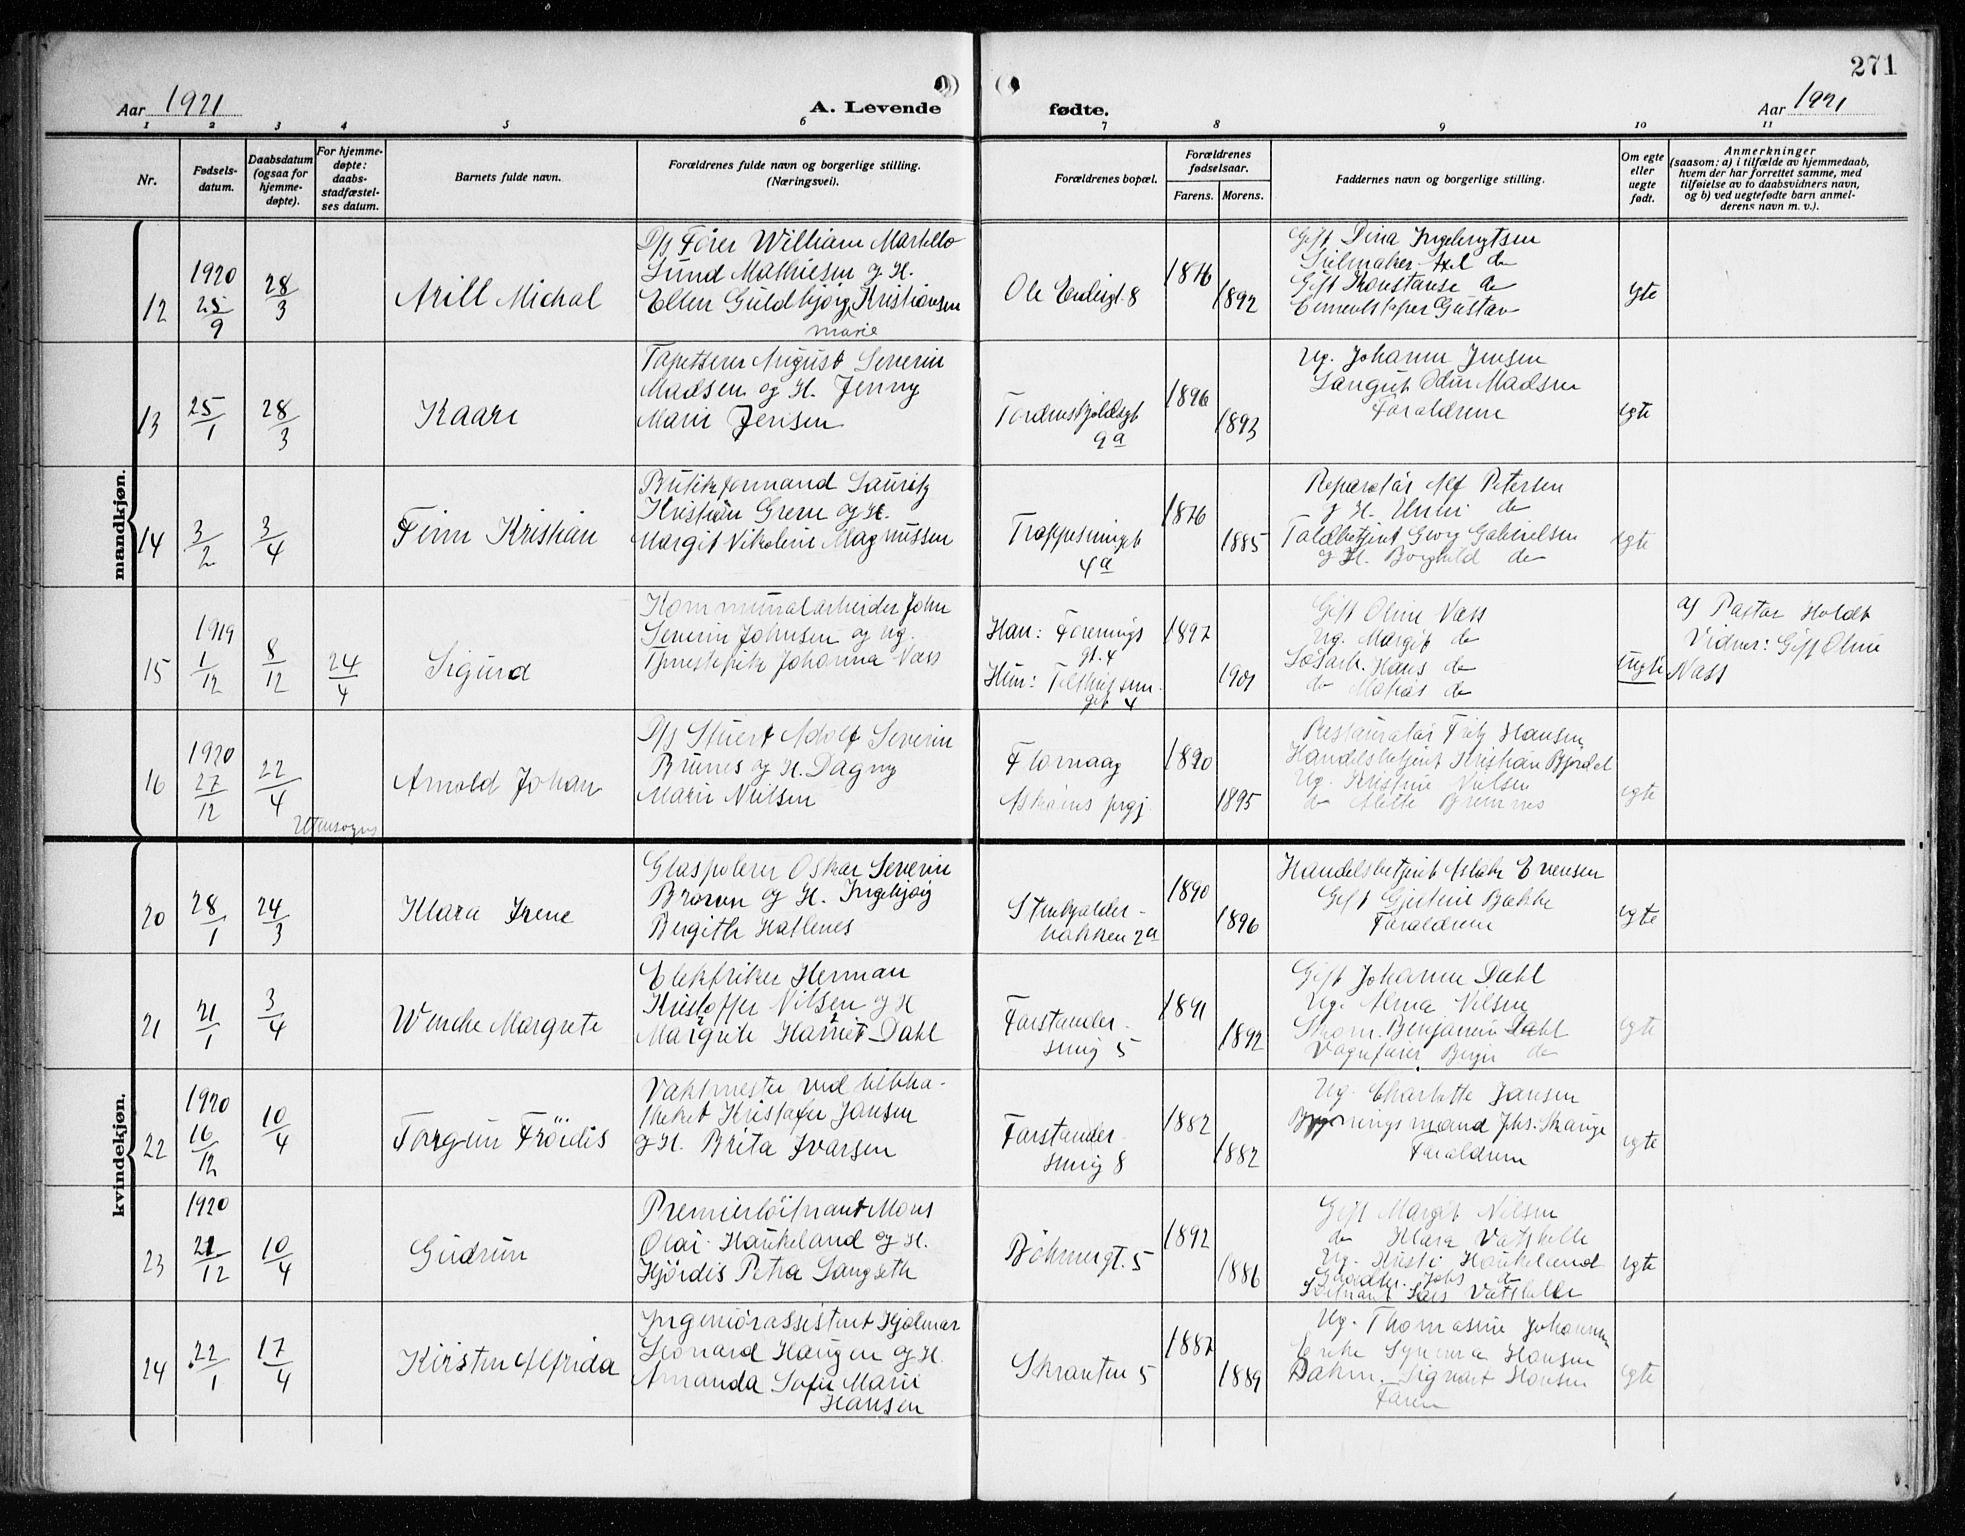 271
Aar 1921
A. Levende
fødte.
Aar 1921
1 2 3 4 5 6 7 8 9 10 11
Nr.
Fødsels-
datum.
Daabsdatum
(ogsaa for
hjemme-
døpte).
For hjemme-
døpte:
daabs-
stadfæstel-
ses datum.
Barnets fulde navn.
Forældrenes fulde navn og borgerlige stilling.
(Næringsvei).
Forældrenes bopæl.
Forældrenes
fødselsaar.
Farens. Morens.
Faddernes navn og borgerlige stilling.
Om egte
eller
uegte
født.
Anmerkninger
(saasom: a) i tilfælde av hjemmedaab,
hvem der har forrettet samme, med
tilføielse av to daabsvidners navn,
og b) ved uegtefødte barn anmel-
derens navn m. v.).
mandkjøn.
12
1920
25/9
28/3
Arill Michal
D/s Fører William Martello
Lund Mathiesen og H.
Ellen Guldbjørg Kristiansen
Marie
1876
1892
Gift Dina Ingebrigtsen
Seilmaker Axel do
Gift Konstanse do
Gustav
egte
13
25/1
28/3
Kaare
Tapetserer August Severin
Madsen og H. Jenny
Marie Jensen
Tordenskjoldsgt
9a
1896
1893
Ug. Johanne Jensen
Odin Madsen
Forældrene
egte
14
3/2
3/4
Finn Kristian
Butikformand Lauritz
Kristian Green og H.
Margit Nikoline Magnussen
4a
1876
1885
Reparatør Alf Petersen
og H. do
Toldbetjent Georg Gabrielsen
og H. Borghild do
egte
15
1919
1/12
8/12
24/4
Sigurd
Kommunalarbeider John
Severin Johnsen og ug.
Tjenestepike Johanna Vass
Han: Forenings
gt. 4
Hun:
gt 4
1897
1901
Gift Oline Vass
Ug. Margit do
Løsarb. Hans do
do Matias do
uegte
af Pastor Holdt
Vidner: Gift Oline
Vass
16
1920
27/12
22/4
Utensogns
Arnold Johan
D/s Stuert Adolf Severin
Brunes og H. Dagny
Marie Nilsen
Florvaag
Askøens prgj.
1890
1895
Restauratør Fritz Hansen
Handelsbetjent Kristian Bjørdal
Ug. Kristine Nilsen
do Alette Bremnes
egte
kvindekjøn.
20
28/1
24/3
Klara Irene
Glaspolerer Oskar Severin
og H. Ingebjørg
Bergithe Hatlenes
Stenkjelder-
bakken 2a
1890
1896
Handelsbetjent Aslak Evensen
Gift Gjertine Bakke
Forældrene
egte
21
21/1
3/4
Wenche Margrete
Elektriker Herman
Kristoffer Nilsen og H
Margrete Harriet Dahl
Forstander-
smug 5
1891
1892
Gift Johanne Dahl
Ug. Alma Nilsen
Skom. Benjamin Dahl
Vognfører Birger do
egte
22
1920
16/12
10/4
Torgun Fröidis
Vaktmester ved biblio-
theket Kristofer Jansen
og H. Brita Ivarsen
Forstander-
smug 8
1882
1882
Ug. Charlotte Jansen
Bygningsmand Johs. Skauge
Forældrene
egte
23
1920
21/12
10/4
Gudrun
Premierløitnant Mons
Olai Haukeland og H.
Hjördis Petra Langseth
Böhmergt. 5
1892
1886
Gift Margit Nilsen
do Klara Vatshelle
Ug. Kirsti Haukeland
Gaardbr. Johs do
Løitnant Lars Vatshelle
egte
24
22/1
17/4
Kirsten Alfrida
Ingeniørassistent Hjalmar
Leonard Haugen og H.
Amanda Sofie Marie
Hansen
Skranten 5
1887
1889
Ug. Thomasine Johannesen
Enke Synneva Hansen
Bakm. Sigvart Hansen
Faren
egte